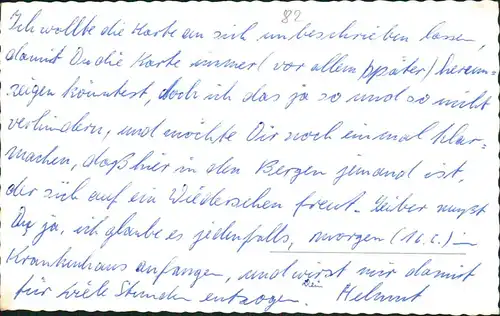 82
Ich wollte die Karte an sich unbeschrieben lassen,
damit Du die Karte immer (vor allem später) herum-
zeigen könntest, doch ich das ja so und so nicht
verhindern, und möchte Dir noch einmal klar-
machen, daß hier in den Bergen jemand ist,
der sich auf ein Wiedersehen freut. Leider mußt
Du ja, ich glaube es jedenfalls, morgen (16. 2.) im
Krankenhaus anfangen, und wirst mir damit
für viele Stunden entzogen. Dein Helmut